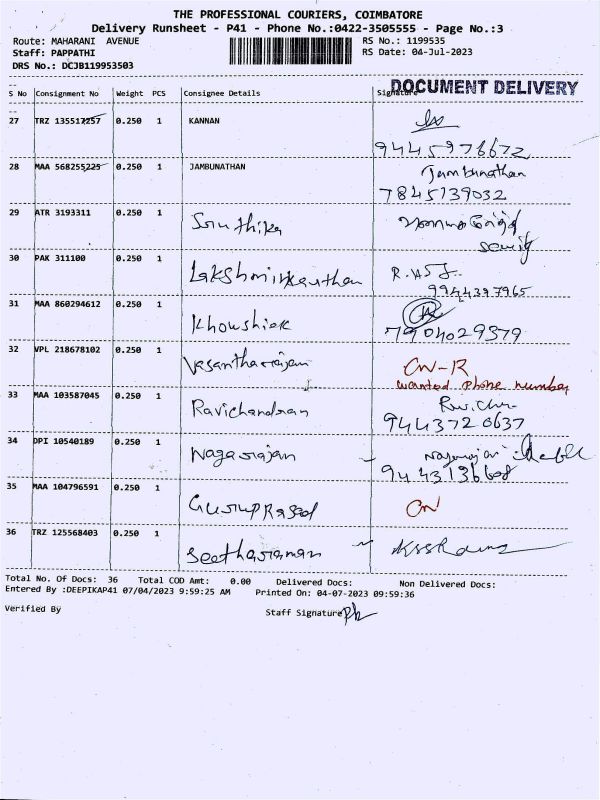 THE PROFESSIONAL COURIERS, COIMBATORE
Delivery Runsheet - P41 - Phone No.:0422-3505555 - Page No.:3
Route: MAHARANI AVENUE RS No.: 1199535
Staff: PAPPATHI RS Date: 04-Jul-2023
DRS No.: DCJB119953503
DOCUMENT DELIVERY
S No Consignment No Weight PCS Consignee Details Signature
27 TRZ 135517257 0.250 1 KANNAN
9445978672
28 MAA 568255225 0.250 1 JAMBUNATHAN Jambunathan
7845139032
29 ATR 3193311 0.250 1 Sruthika
30 PAK 311100 0.250 1 Lakshminkanthan
9944397965
31 MAA 860294612 0.250 1 Khowshick
7904029379
32 VPL 218678102 0.250 1 Vasantharajan CN-R
wanted phone number
33 MAA 103587045 0.250 1 Ravichandran
9443720637
34 DPI 10540189 0.250 1 Nagarajan
9443136608
35 MAA 104796591 0.250 1 Guruprasad CN
36 TRZ 125568403 0.250 1 Seetharaman
Total No. Of Docs: 36 Total COD Amt: 0.00 Delivered Docs: Non Delivered Docs:
Entered By :DEEPIKAP41 07/04/2023 9:59:25 AM Printed On: 04-07-2023 09:59:36
Verified By Staff Signature